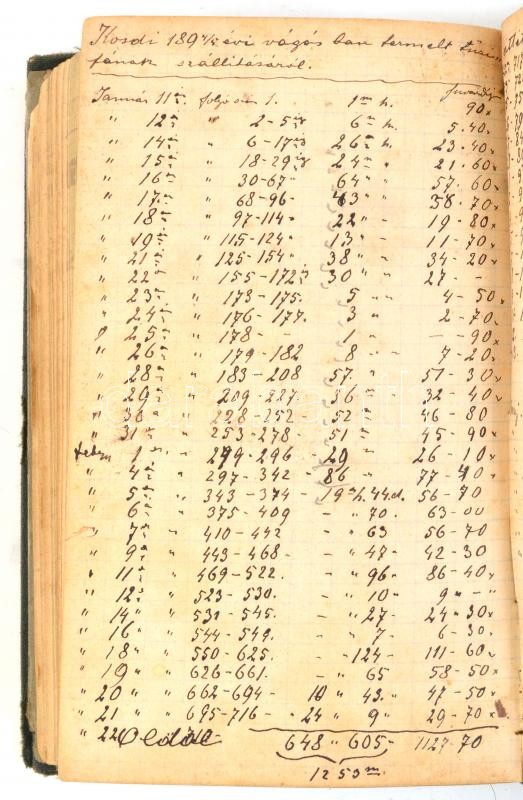 Kosdi 189 4/5 évi vágásban termelt tűzi
fának szállításáról.
Január 11én folyó sz 1. 1 m h. fuvardíj 90
" 12 " " 2-5 ig 6 " h. 5.40
" 14 " " 6-17 ig 26 " h. 23-40
" 15 " " 18-29 ig 24 " " 21-60
" 16 " " 30-67 64 " " 57-60
" 17 " " 68-96 43 " " 38-70
" 18 " " 97-114 22 " " 19-80
" 19 " " 115-124 13 " " 11-70
" 21 " " 125-154 38 " " 34-20
" 22 " " 155-172 30 " " 27 - -
" 23 " " 173-175. 5 " " 4-50
" 24 " " 176-177. 3 " " 2-70
" 25 " " 178- - 1 " - 90
" 26 " " 179-182 8 " " 7-20
" 28 " " 183-208 57 " " 51-30
" 29 " " 209-227 36 " " 32-40
" 30 " " 228-252 52 " " 46-80
" 31 " " 253-278 51 " 45-90
1 " " 279-296 29 " 26-10
" 4 " " 297-342 86 " 77-40
" 5 " " 343-374 - 19 m h. 44 d. 56-70
" 6 " " 375-409 - " 70. 63-00
" 7 " " 410-442 - " 63 56-70
" 9 " " 443-468 - - " 47 - 42-30
" 11 " " 469-522. - " 96 " 86-40
" 12 " " 523-530. - " 10 " 9 " - "
" 14 " " 531-545. - " 27 - 24-30
" 16 " " 544-549. - " 7 " 6-30
" 18 " " 550-625. - " 124 - 111-60
" 19 " " 626-661. - " 65 58-50
" 20 " " 662-694 - 10 " 43 " 47-50
" 21 " " 695-716 - 24 " 9 " 29-70
" 22 Oldal 648 " 605 - 1127-70
1253 m